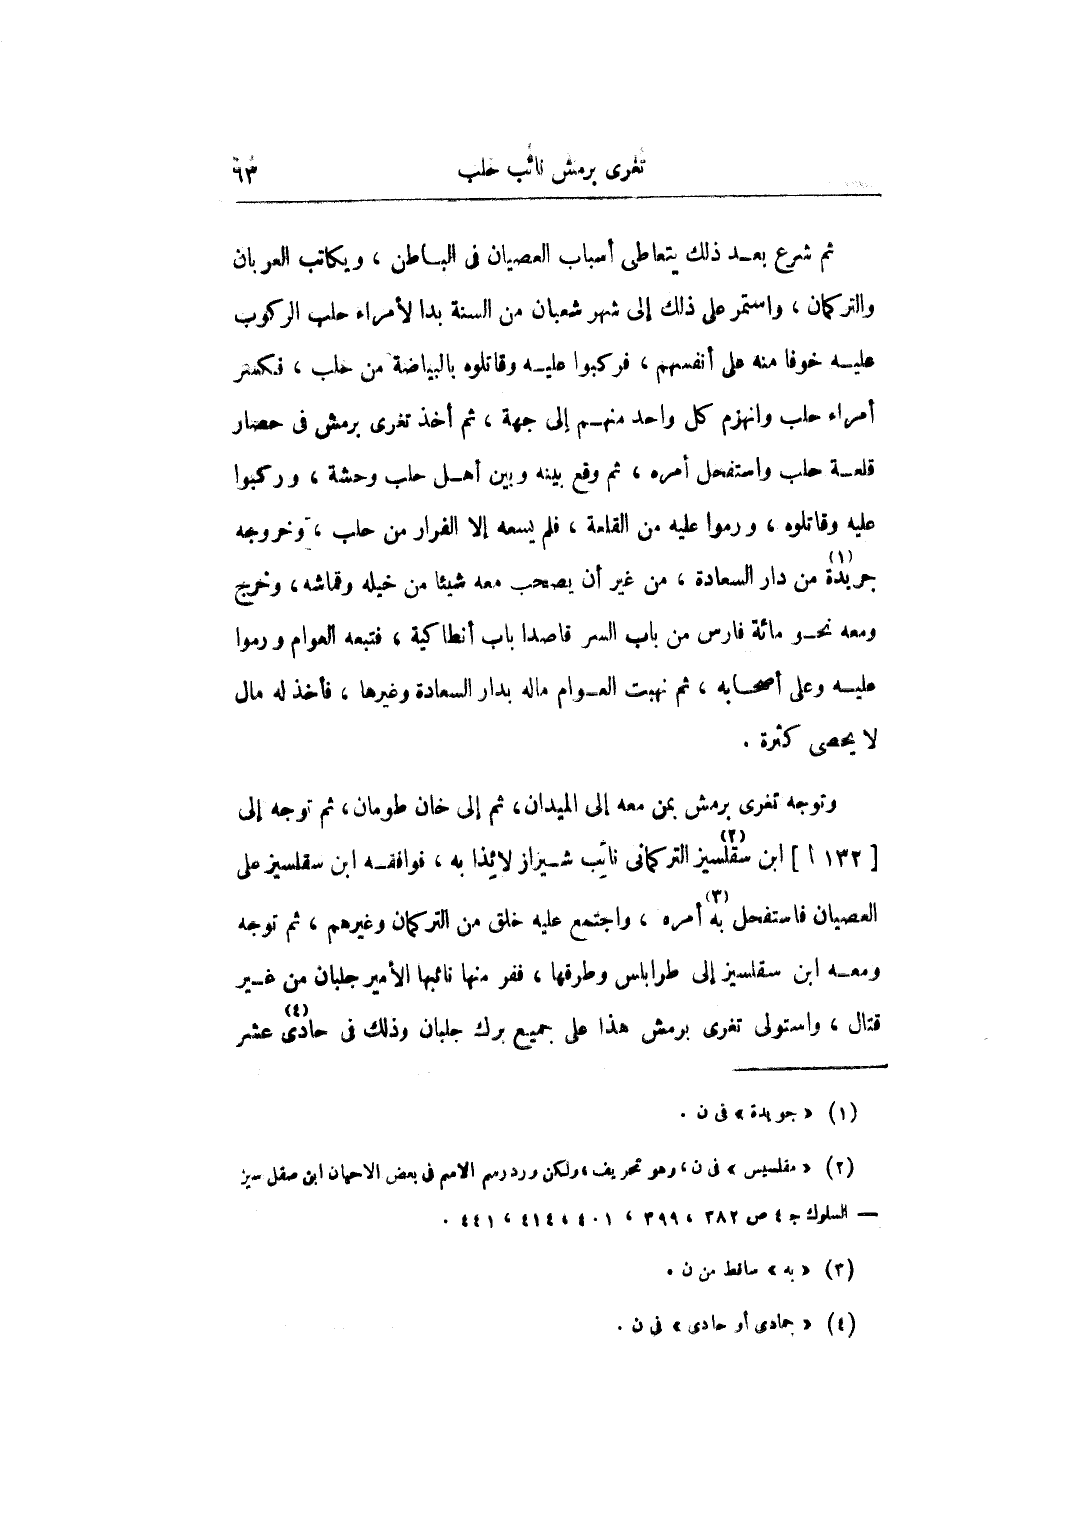 تغرى برمش نائب حلب ٦٣
ثم شرع بعد ذلك يتعاطى أسباب العصيان فى الباطن ، ويكاتب العربان
والتركمان ، واستمر على ذلك إلى شهر شعبان من السنة بدا لأمراء حلب الركوب
عليه خوفا منه على أنفسهم ، فركبوا عليه وقاتلوه بالبياضة من حلب ، فكسر
أمراء حلب وانهزم كل واحد منهم إلى جهة ، ثم أخذ تغرى برمش فى حصار
قلعة حلب واستفحل أمره ، ثم وقع بينه وبين أهل حلب وحشة ، وركبوا
عليه وقاتلوه ، ورموا عليه من القلعة ، فلم يسعه إلا الفرار من حلب ، وخروجه
جريدة (١) من دار السعادة ، من غير أن يصحب معه شيئا من خيله وقماشه ، وخرج
ومعه نحو مائة فارس من باب السر قاصدا باب أنطاكية ، فتبعه العوام ورموا
عليه وعلى أصحابه ، ثم نهبت العوام ماله بدار السعادة وغيرها ، فأخذ له مال
لا يحصى كثرة .
وتوجه تغرى برمش بمن معه إلى الميدان ، ثم إلى خان طومان ، ثم توجه إلى
[ ١٣٢ أ ] ابن سقلسيز (٢) التركمانى نائب شيزاز لائذا به ، فوافقه ابن سقلسيز على
العصيان فاستفحل به (٣) أمره ، واجتمع عليه خلق من التركمان وغيرهم ، ثم توجه
ومعه ابن سقلسيز إلى طرابلس وطرقها ، ففر منها نائبها الأمير جلبان من غير
قتال ، واستولى تغرى برمش هذا على جميع برك جلبان وذلك فى حادى (٤) عشر
(١) « جويدة » فى ن .
(٢) « مقلسيس » فى ن ، وهو تحريف ، ولكن ورد رسم الاسم فى بعض الاحيان ابن صقل سيز
— السلوك ج ٤ ص ٣٨٢ ، ٣٩٩ ، ٤٠١ ، ٤١٤ ، ٤٤١ .
(٣) « به » ساقط من ن .
(٤) « جمادى أو حادى » فى ن .